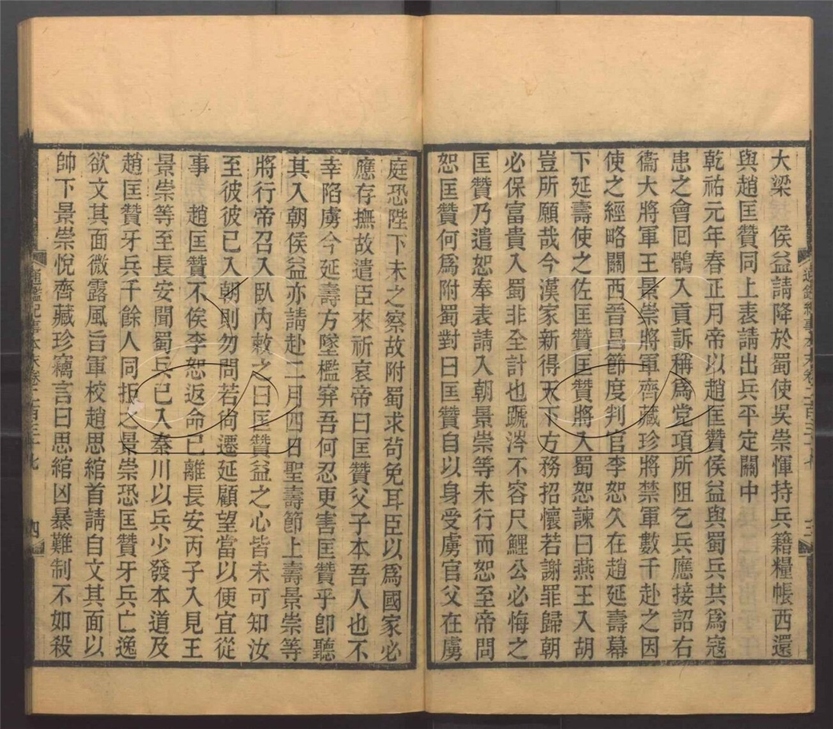 大梁　侯益請降於蜀使吳崇惲持兵籍糧帳西還
與趙匡贊同上表請出兵平定關中
乾祐元年春正月帝以趙匡贊侯益與蜀兵共為寇
患之會回鶻入貢訴稱為党項所阻乞兵應接詔右
衞大將軍王景崇將軍齊藏珍將禁軍數千赴之因
使之經略關西晉昌節度判官李恕久在趙延壽幕
下延壽使之佐匡贊匡贊將入蜀恕諫曰燕王入胡
豈所願哉今漢家新得天下方務招懷若謝罪歸朝
必保富貴入蜀非全計也蹏涔不容尺鯉公必悔之
匡贊乃遣恕奉表請入朝景崇等未行而恕至帝問
恕匡贊何爲附蜀對曰匡贊自以身受虜官父在虜
庭恐陛下未之察故附蜀求苟免耳臣以爲國家必
應存撫故遣臣來祈哀帝曰匡贊父子本吾人也不
幸陷虜今延壽方墜檻穽吾何忍更害匡贊乎卽聽
其入朝侯益亦請赴二月四日聖壽節上壽景崇等
將行帝召入臥內敕之曰匡贊益之心皆未可知汝
至彼彼已入朝則勿問若尚遷延顧望當以便宜從
事　趙匡贊不俟李恕返命已離長安丙子入見王
景崇等至長安聞蜀兵已入秦川以兵少發本道及
趙匡贊牙兵千餘人同拒之景崇恐匡贊牙兵亡逸
欲文其面微露風旨軍校趙思綰首請自文其面以
帥下景崇悅齊藏珍竊言曰思綰凶暴難制不如殺
通鑑紀事本末卷二百三十七
四